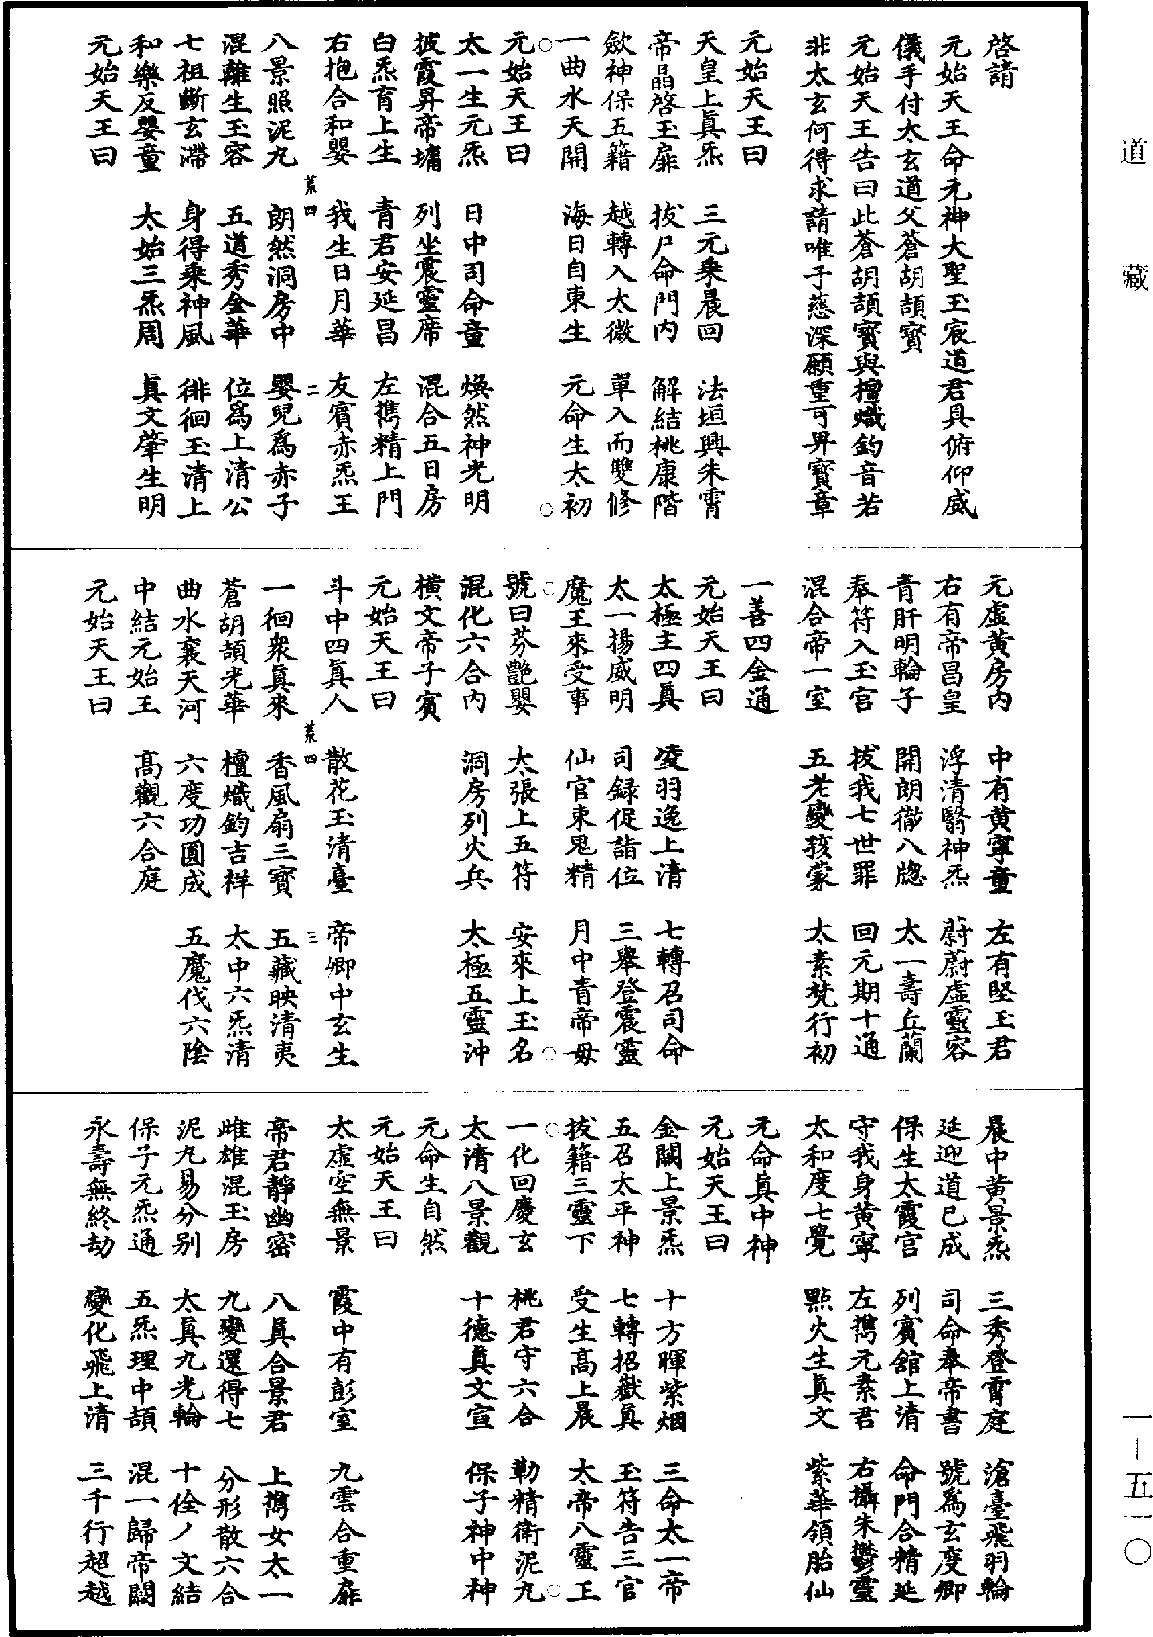 道藏
啓請
元始天王命元神大聖玉宸道君具俯仰威
儀手付太玄道父蒼胡頡寶
元始天王告曰此蒼胡頡寶與檀熾鈞音若
非太玄何得求請唯子慈深願重可畀寶章
元始天王曰
天皇上真炁　三元乘晨回　法垣興朱霄
帝晶啓玉扉　拔尸命門内　解結桃康階
歛神保五籍　越轉入太微　單入而雙修
一曲水天開　海日自東生　元命生太初
元始天王曰
太一生元炁　日中司命童　煥然神光明
披霞昇帝墉　列坐震靈席　混合五日房
白炁育上生　青君安延昌　左携精上門
右抱合和嬰　我生日月華　友賓赤炁王
菜四　二
八景照泥丸　朗然洞房中　嬰兒爲赤子
混離生玉容　五道秀金華　位爲上清公
七祖斷玄滯　身得乘神風　徘徊玉清上
和樂反嬰童　太始三炁周　真文肇生明
元始天王曰
元虛黃房内　中有黄寧童　左有堅玉君
右有帝昌皇　浮清翳神炁　蔚蔚虛靈容
青肝明輪子　開朗徹八牎　太一壽丘蘭
奉符入玉宫　拔我七世罪　回元期十通
混合帝一室　五老變孩蒙　太素梵行初
一善四金通
元始天王曰
太極主四真　凌羽逸上清　七轉召司命
太一揚威明　司録促詣位　三舉登震靈
魔王來受事　仙官束鬼精　月中青帝母
號曰芬艷嬰　太張上五符　安來上玉名
混化六合内　洞房列火兵　太極五靈沖
橫文帝子賓
元始天王曰
斗中四真人　散花玉清臺　帝卿中玄生
菜四　三
一徊衆真來　香風扇三寶　五藏映清夷
蒼胡頡光華　檀熾鈞吉祥　太中六炁清
曲水襄天河　六度功圓成　五魔伐六陰
中結元始王　高觀六合庭
元始天王曰
晨中黄景炁　三秀登霄庭　滄臺飛羽輪
延迎道已成　司命奉帝書　號爲玄度卿
保生太霞宫　列賓舘上清　命門合精延
守我身黄寧　左携元素君　右攝朱鬱靈
太和度七覺　點火生真文　紫華領胎仙
元命真中神
元始天王曰
金闕上景炁　十方暉紫烟　三命太一帝
五召太平神　七轉招嶽真　玉符告三官
拔籍三靈下　受生高上晨　太帝八靈王
一化回慶玄　桃君守六合　勒精衛泥丸
太清八景觀　十德真文宣　保子神中神
元命生自然
元始天王曰
太虛空無景　霞中有彭室　九雲合重扉
帝君靜幽密　八真合景君　上携女太一
雌雄混玉房　九變還得七　分形散六合
泥丸易分别　太真九光輪　十佺丿文結
保子元炁通　五炁理中頡　混一歸帝闕
永壽無終劫　變化飛上清　三千行超越
一—五一〇